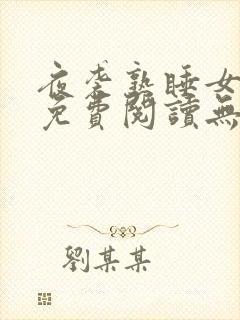 夜袭熟睡女
免費閱讀無
劉某某